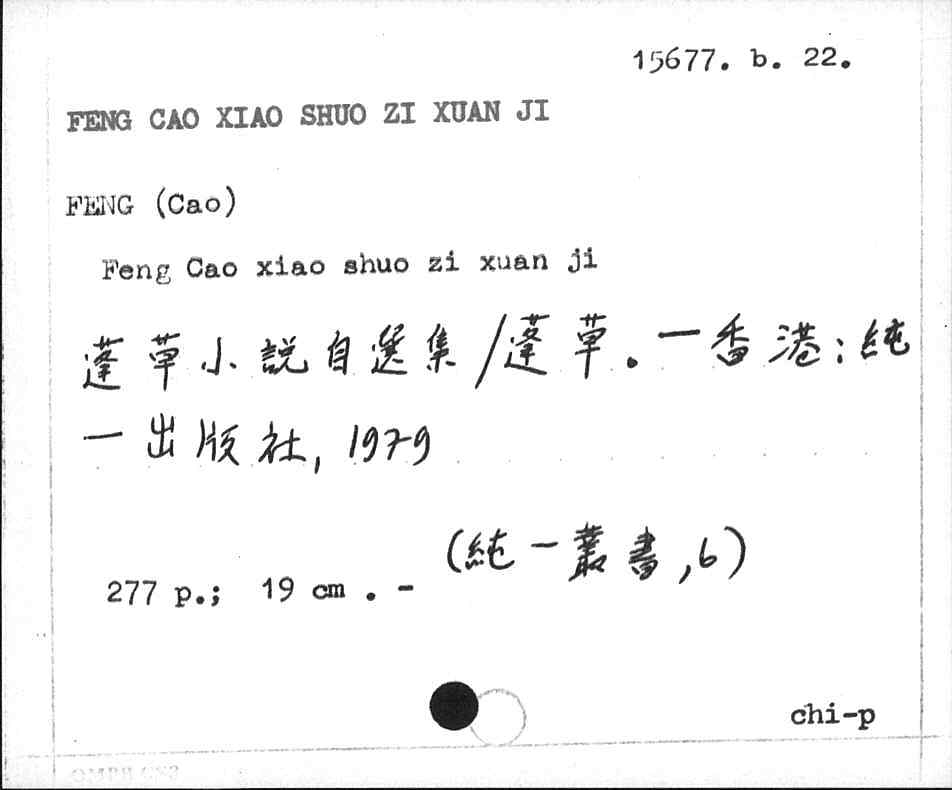 15677. b. 22.
FENG CAO XIAO SHUO ZI XUAN JI
FENG (Cao)
Feng Cao xiao shuo zi xuan ji
蓬草小説自選集/蓬草.一香港:純
一出版社, 1979
(純一叢書,6)
277 p.; 19 cm . -
chi-p